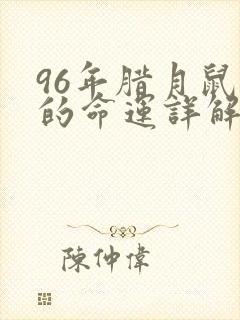 96年腊月鼠
的命運詳解
陳仲偉